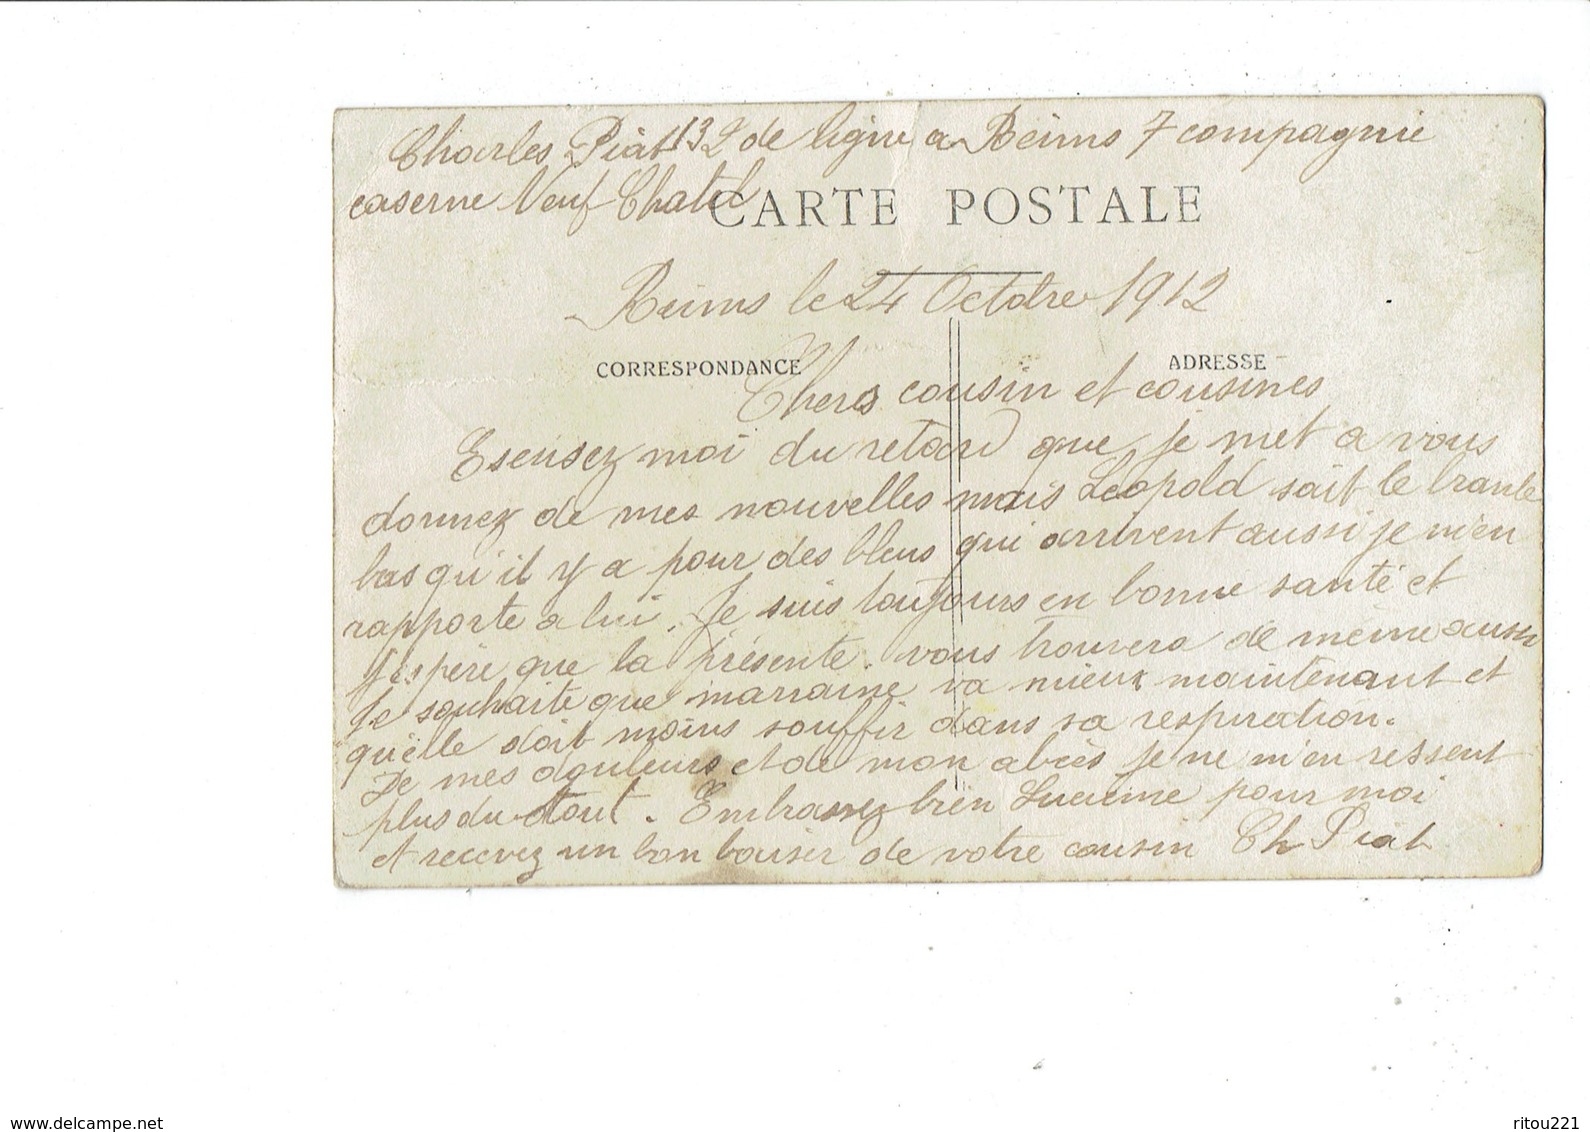 Charles Piat 132 de ligne a Reims 7 compagnie
caserne Neuf Chatel
CARTE POSTALE
Reims le 24 Octobre 1912
CORRESPONDANCE
ADRESSE
Chers cousin et cousines
Escusez moi du retard que je met a vous
donnez de mes nouvelles mais Leopold sait le branle
bas qu'il y a pour des bleus qui arrivent aussi je m'en
rapporte a lui. Je suis toutjours en bonne santé et
j'espère que la présente vous trouvera de même aussi
Je souhaite que marraine va mieux maintenant et
qu'elle doit moins souffir dans sa respiration.
De mes douleurs et de mon abcès je ne m'en ressent
plus du tout. Embrassez bien Lucienne pour moi
et recevez un bon baiser de votre cousin Ch Piat
www.delcampe.net
ritou221